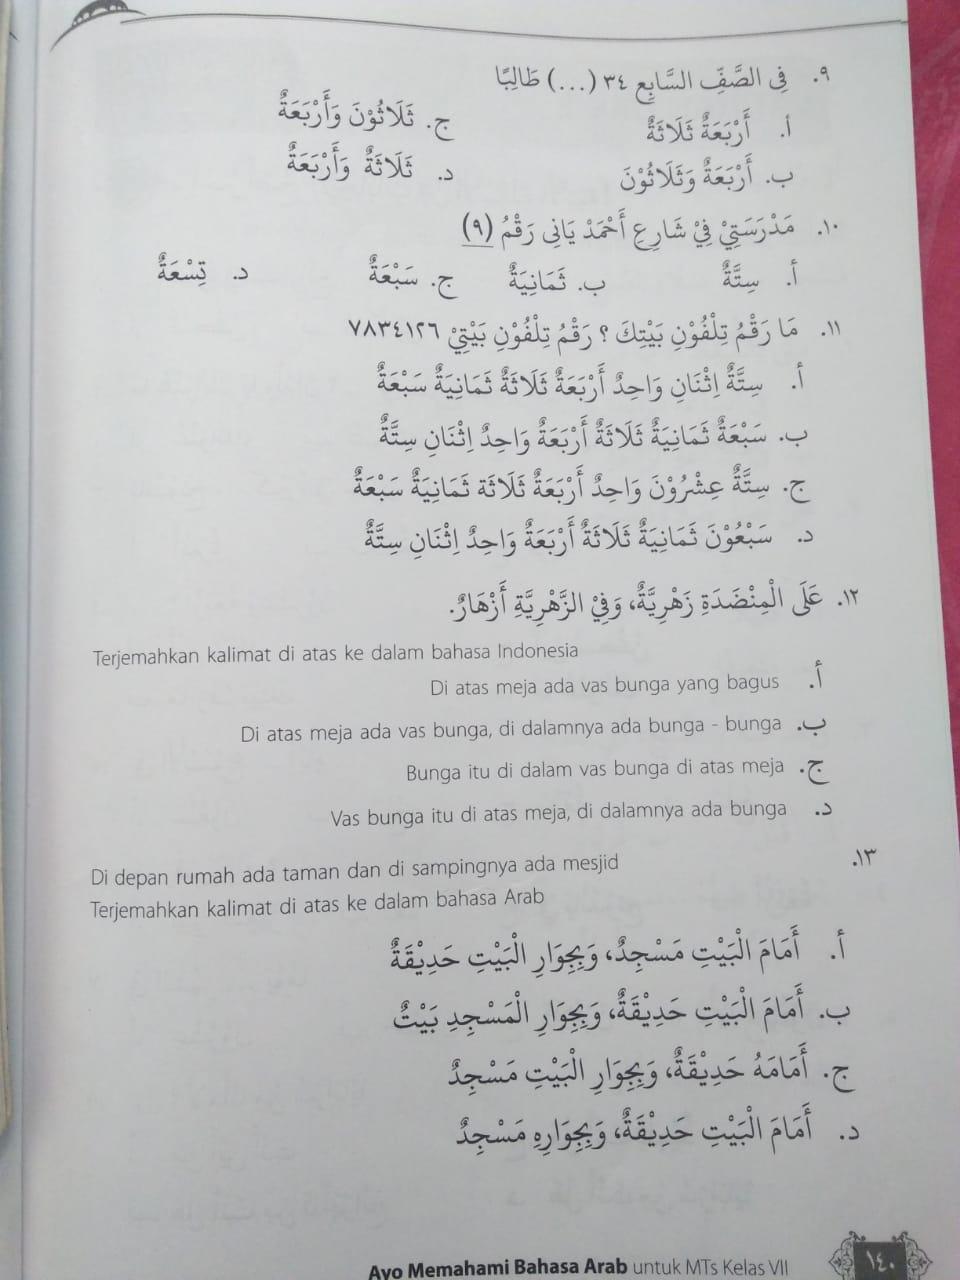 ٩. فِى الصَّفِّ السَّابِعِ ٣٤ (...) طَالِبًا
أ. أَرْبَعَةٌ ثَلَاثَةٌ ج. ثَلَاثُوْنَ وَأَرْبَعَةٌ
ب. أَرْبَعَةٌ وَثَلَاثُوْنَ د. ثَلَاثَةٌ وَأَرْبَعَةٌ
١٠. مَدْرَسَتِيْ فِيْ شَارِعِ أَحْمَدْ يَانِى رَقْمُ (٩)
أ. سِتَّةٌ ب. ثَمَانِيَةٌ ج. سَبْعَةٌ د. تِسْعَةٌ
١١. مَا رَقْمُ تِلْفُوْنِ بَيْتِكَ؟ رَقْمُ تِلْفُوْنِ بَيْتِيْ ٧٨٣٤١٢٦
أ. سِتَّةٌ اِثْنَانِ وَاحِدٌ أَرْبَعَةٌ ثَلَاثَةٌ ثَمَانِيَةٌ سَبْعَةٌ
ب. سَبْعَةٌ ثَمَانِيَةٌ ثَلَاثَةٌ أَرْبَعَةٌ وَاحِدٌ اِثْنَانِ سِتَّةٌ
ج. سِتَّةٌ عِشْرُوْنَ وَاحِدٌ أَرْبَعَةٌ ثَلَاثَة ثَمَانِيَةٌ سَبْعَةٌ
د. سَبْعُوْنَ ثَمَانِيَةٌ ثَلَاثَةٌ أَرْبَعَةٌ وَاحِدٌ اِثْنَانِ سِتَّةٌ
١٢. عَلَى الْمِنْضَدَةِ زَهْرِيَّةٌ، وَفِيْ الزَّهْرِيَّةِ أَزْهَارٌ.
Terjemahkan kalimat di atas ke dalam bahasa Indonesia
أ. Di atas meja ada vas bunga yang bagus
ب. Di atas meja ada vas bunga, di dalamnya ada bunga - bunga
ج. Bunga itu di dalam vas bunga di atas meja
د. Vas bunga itu di atas meja, di dalamnya ada bunga
١٣. Di depan rumah ada taman dan di sampingnya ada mesjid
Terjemahkan kalimat di atas ke dalam bahasa Arab
أ. أَمَامَ الْبَيْتِ مَسْجِدٌ، وَبِجِوَارِ الْبَيْتِ حَدِيْقَةٌ
ب. أَمَامَ الْبَيْتِ حَدِيْقَةٌ، وَبِجِوَارِ الْمَسْجِدِ بَيْتٌ
ج. أَمَامَهُ حَدِيْقَةٌ، وَبِجِوَارِ الْبَيْتِ مَسْجِدٌ
د. أَمَامَ الْبَيْتِ حَدِيْقَةٌ، وَبِجِوَارِهِ مَسْجِدٌ
Ayo Memahami Bahasa Arab untuk MTs Kelas VII ١٤٠